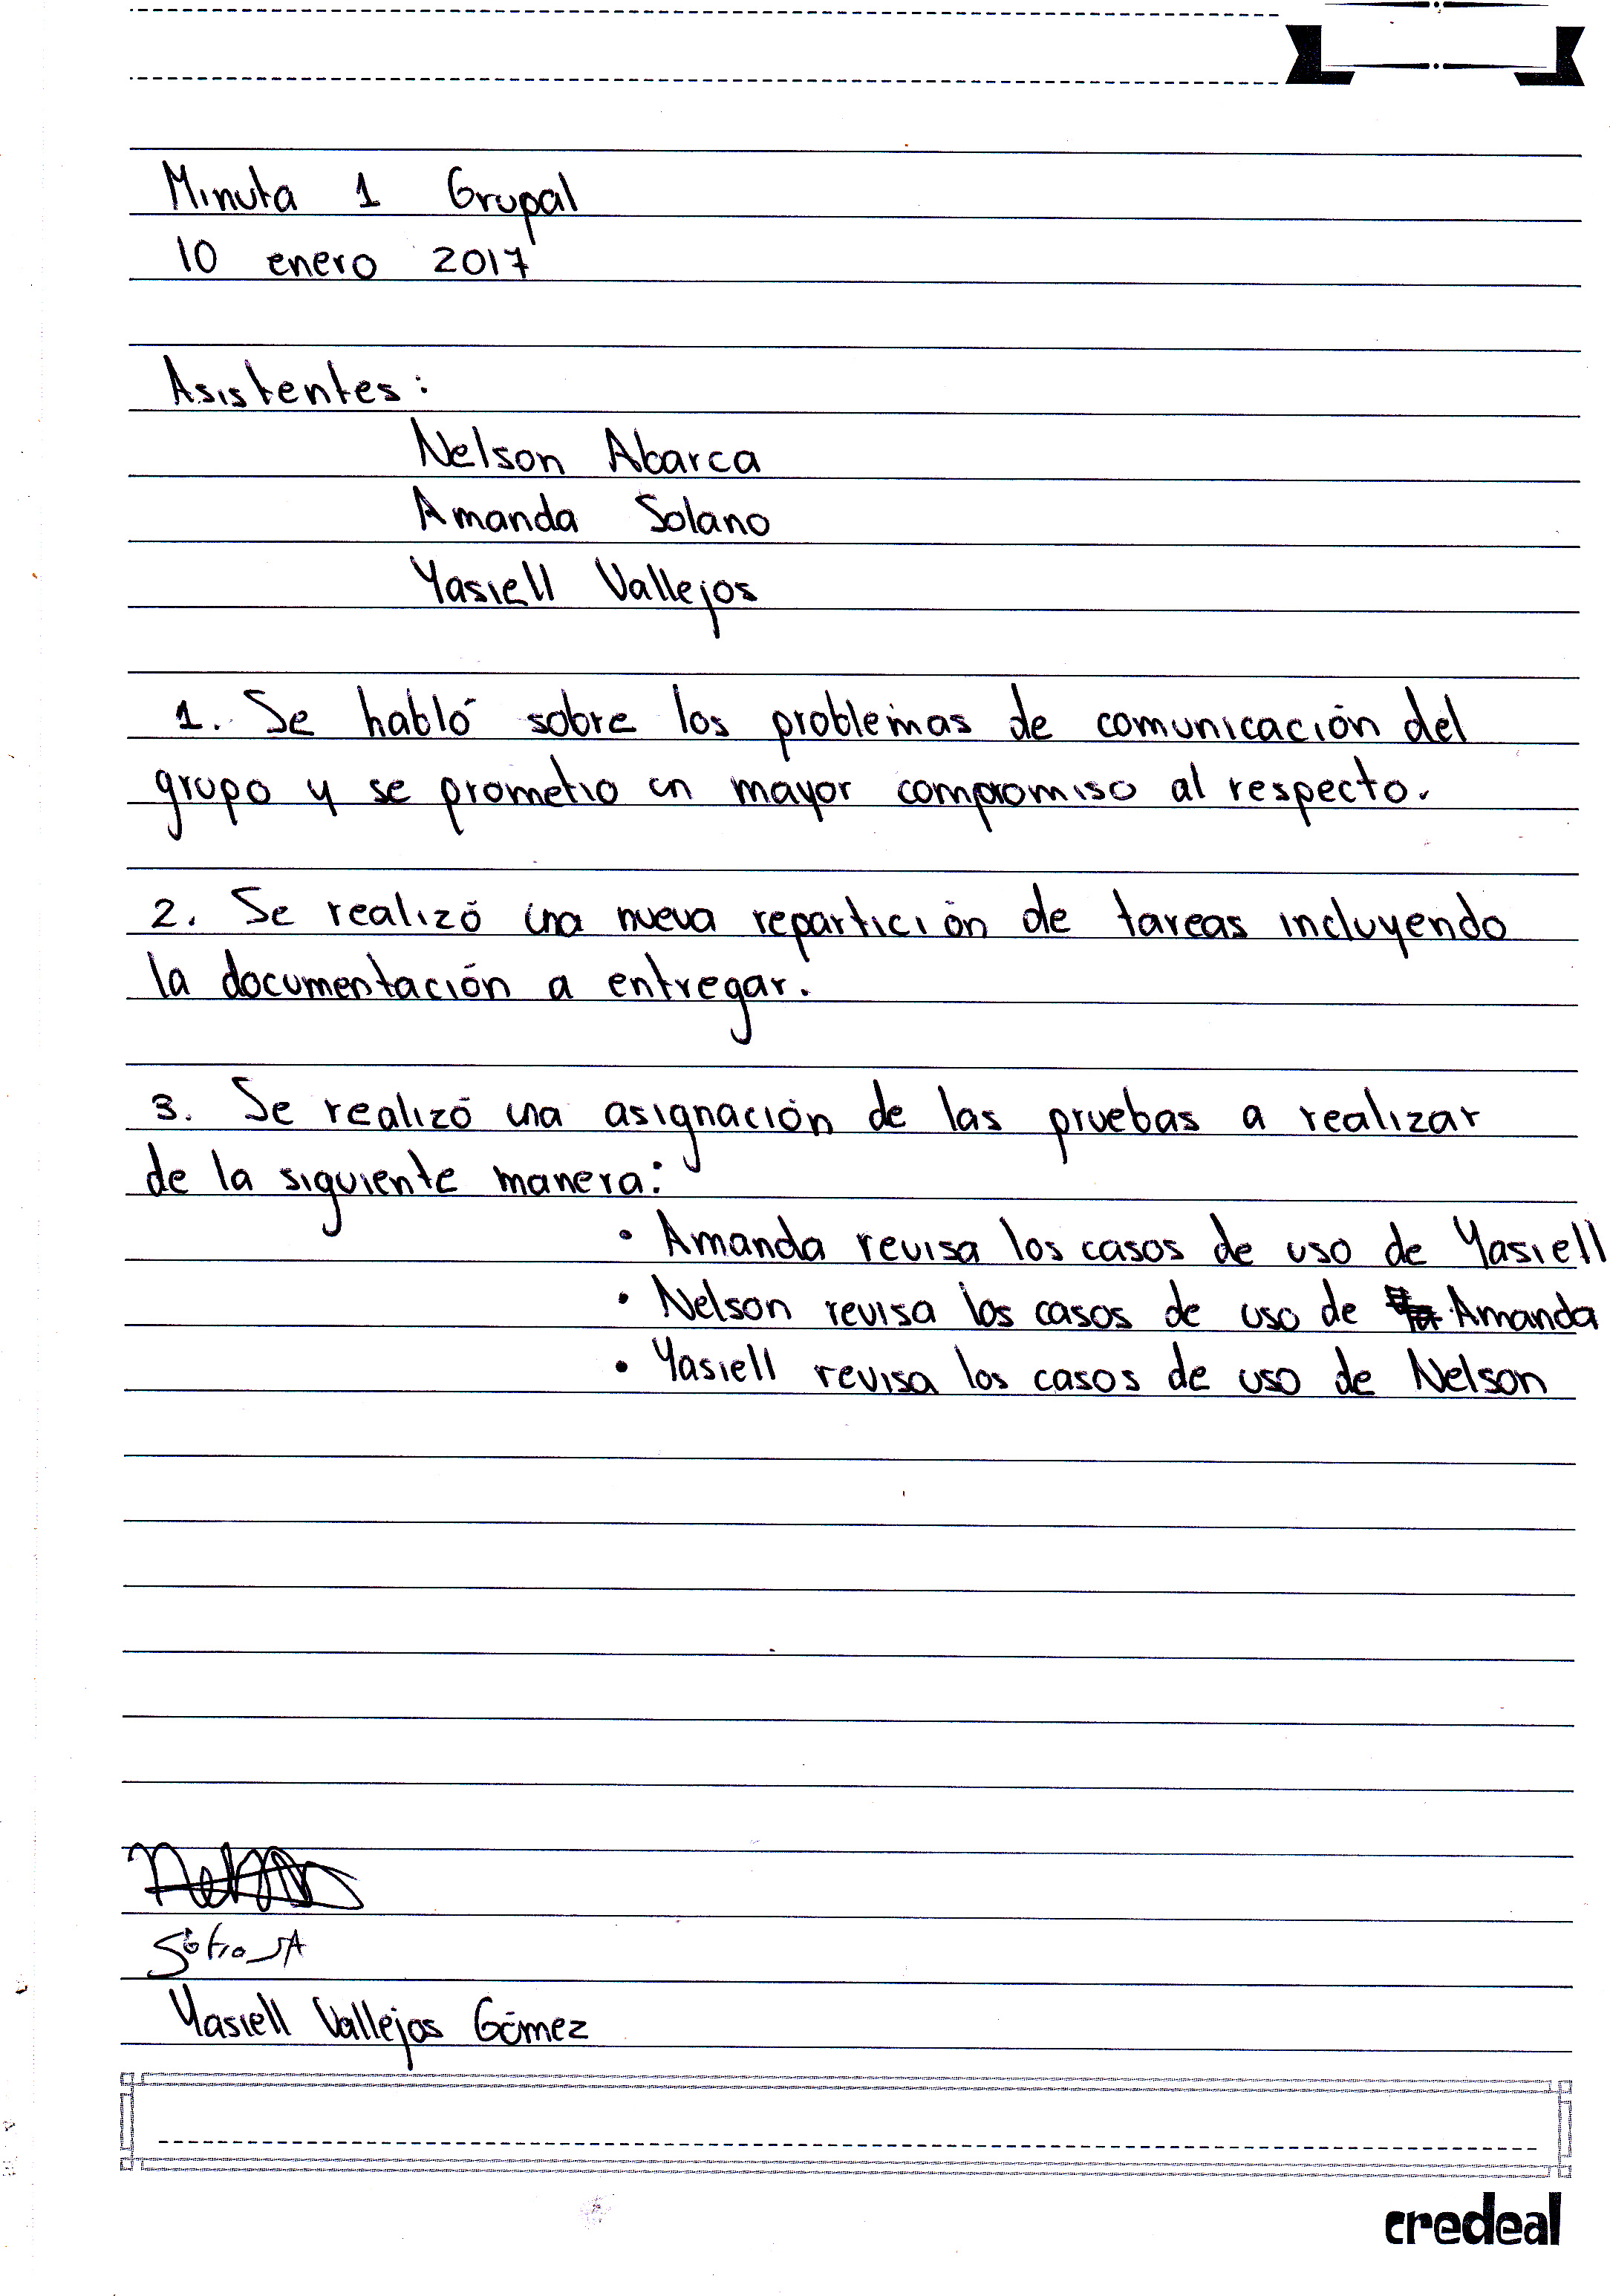 Minuta 1 Grupal
10 enero 2017
Asistentes:
Nelson Abarca
Amanda Solano
Yasiell Vallejos
1. Se habló sobre los problemas de comunicación del
grupo y se prometio un mayor compromiso al respecto.
2. Se realizó una nueva repartición de tareas incluyendo
la documentación a entregar.
3. Se realizó una asignación de las pruebas a realizar
de la siguiente manera:
• Amanda revisa los casos de uso de Yasiell
• Nelson revisa los casos de uso de Amanda
• Yasiell revisa los casos de uso de Nelson
Nelson
Yasiell Vallejos Gómez
credeal